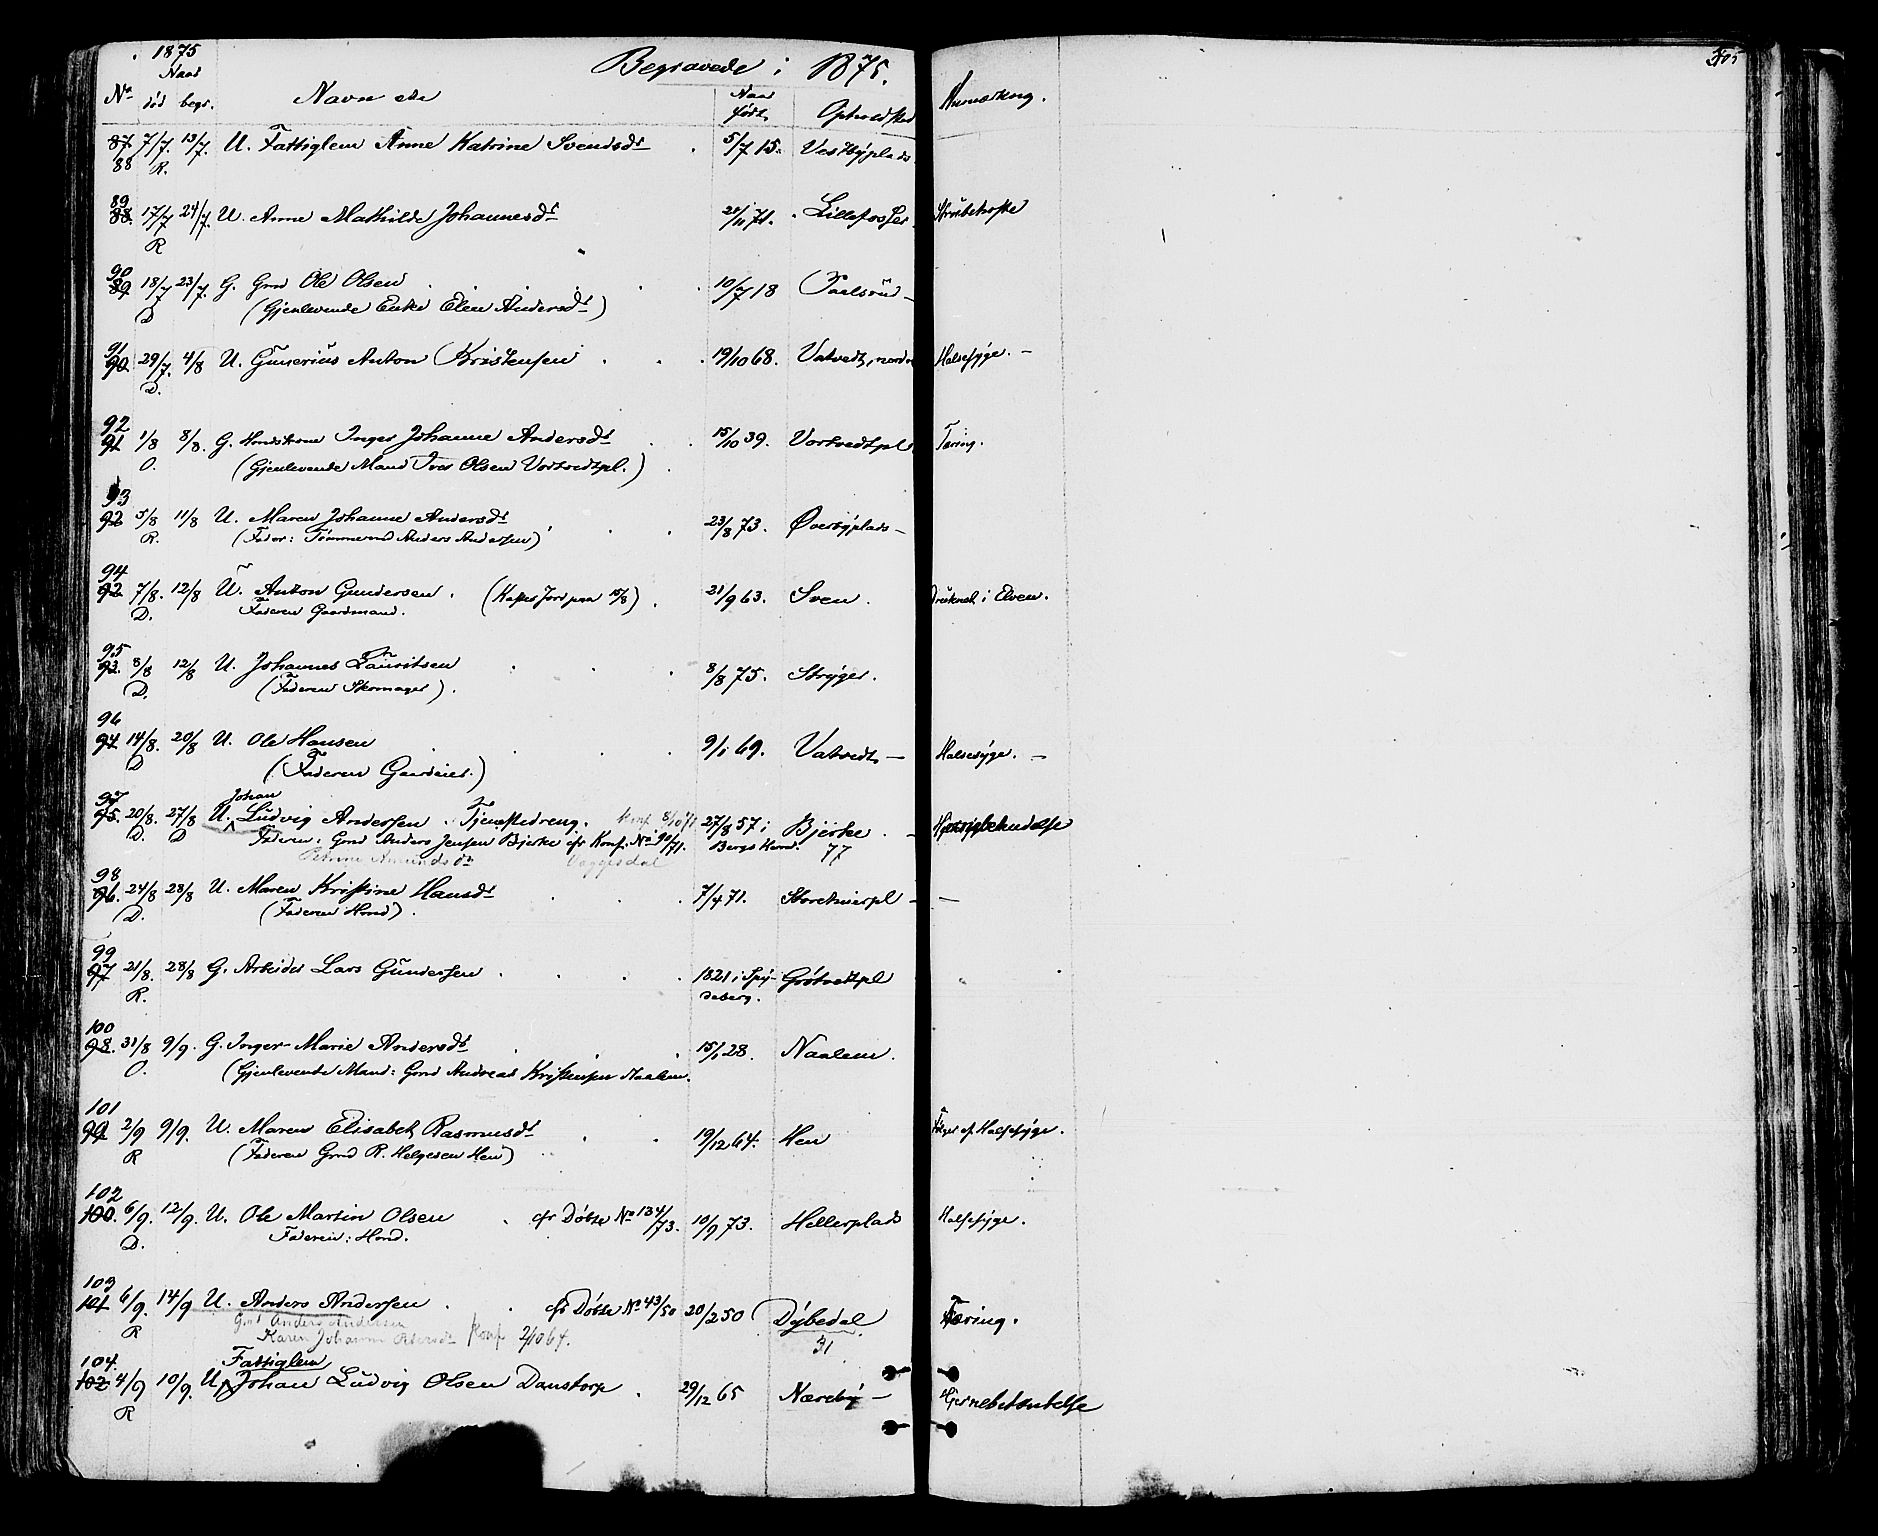 1875 Begravede i 1875. 405
Naar Naar
No død begr. Navn etc født Opholdsted Anmærkning.
87 7/7. 13/7. U. Fattiglem Anne Katrine Svendsdr 5/7 15. Vestbyplads
88 R.
89
88. 17/7 24/7. U. Anne Mathilde Johannesdr 21/11 71. Lillefosser Strubehoste
R
90
89 18/7 23/7. G. Gmd Ole Olsen 10/7 18 Paalsrud
D (Gjenlevende Enke Elen Andersdr)
91
90 29/7. 4/8 U. Gunerius Anton Kristensen 19/10 68. Vatvedt, nordre Halsesyge. —
D.
92
91 1/8 8/8. G. Hmdskone Inger Johanne Andersdr 15/10 39. Vortvedtpl. Tæring.
O. (Gjenlevende Mand Iver Olsen Vortvedtpl.)
93
92 5/8 11/8 U. Maren Johanne Andersdr 23/8 73. Øverbyplads —
R. (Fader: Tømmermd Anders Andersen)
94
92 7/8. 12/8 U. Anton Gundersen. (Kastes Jord paa 15/8). 21/9 63. Sven. Druknet i Elven.
D. Faderen Gaardmand.
95
93. 8/8 12/8 U. Johannes Lauritsen 8/8 75. Stryger.
D. (Faderen Skomager).
96
94 14/8. 20/8 U. Ole Hansen 9/1 69. Vatvedt — Halsesyge. —
D (Faderen Gaardeier.)
97 Johan
95. 20/8. 27/8 U. Ludvig Andersen. Tjenestedreng. Konf 8/10 71 27/8 57 i Bjerke. —
D. D Faderen: Gmd Anders Jensen Bjerke cfr Konf. No 90/71. Bergs Herred. 77
98
96. 24/8 28/8 U. Maren Kristine Hansdr 7/4 71. —
D. (Faderen Hmd).
99
97 21/8. 28/8 G. Arbeider Lars Gundersen 1821 i Spy- Grøtvedtpl
R. deberg.
100
98. 31/8 9/9. G. Inger Marie Andersdr 15/1 28. Naalem.
O. (Gjenlevende Mand: Gmd Andreas Kristensen Naalem.
101
99 2/9 9/9. U. Maren Elisabet Rasmusdr 19/12 64. Hen Følger af Halsesyge.
R (Faderen Gmd R. Helgesen Hen)
102
100. 6/9. 12/9. U. Ole Martin Olsen cfr Døbte No 134/73. 10/9 73. Hellerplads Halsesyge.
D. Faderen: Hmd.
103
101 6/9. 14/9 U. Anders Andersen cfr Døbte No 43/50 20/2 50 Dybedal Tæring.
R Gmd Anders Andersen 31
Karen Johanne Konf 2/10 64.
104. Fattiglem
102 4/9 10/9. U. Johan Ludvig Olsen Danstorp. 29/12 65 Næreby — Hjernebetændelse
R